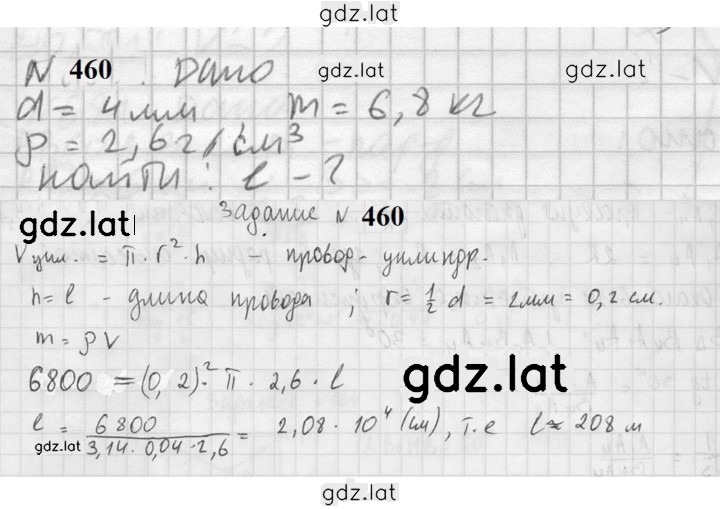 gdz.lat
N 460. Дано gdz.lat gdz.lat
d = 4 мм m = 6,8 кг
ρ = 2,6 г/см³
найти: l - ?
gdz.lat Задание N 460
Vцил. = π · r² · h - провод - цилиндр.
h = l - длина провода ; r = 1/2 d = 2мм = 0,2 см.
m = ρV
6800 = (0,2)² · π · 2,6 · l
gdz.lat
l = 6800 / 3,14 · 0,04 · 2,6 = 2,08 · 10⁴ (см), т.е l ≈ 208 м
gdz.lat
gdz.lat